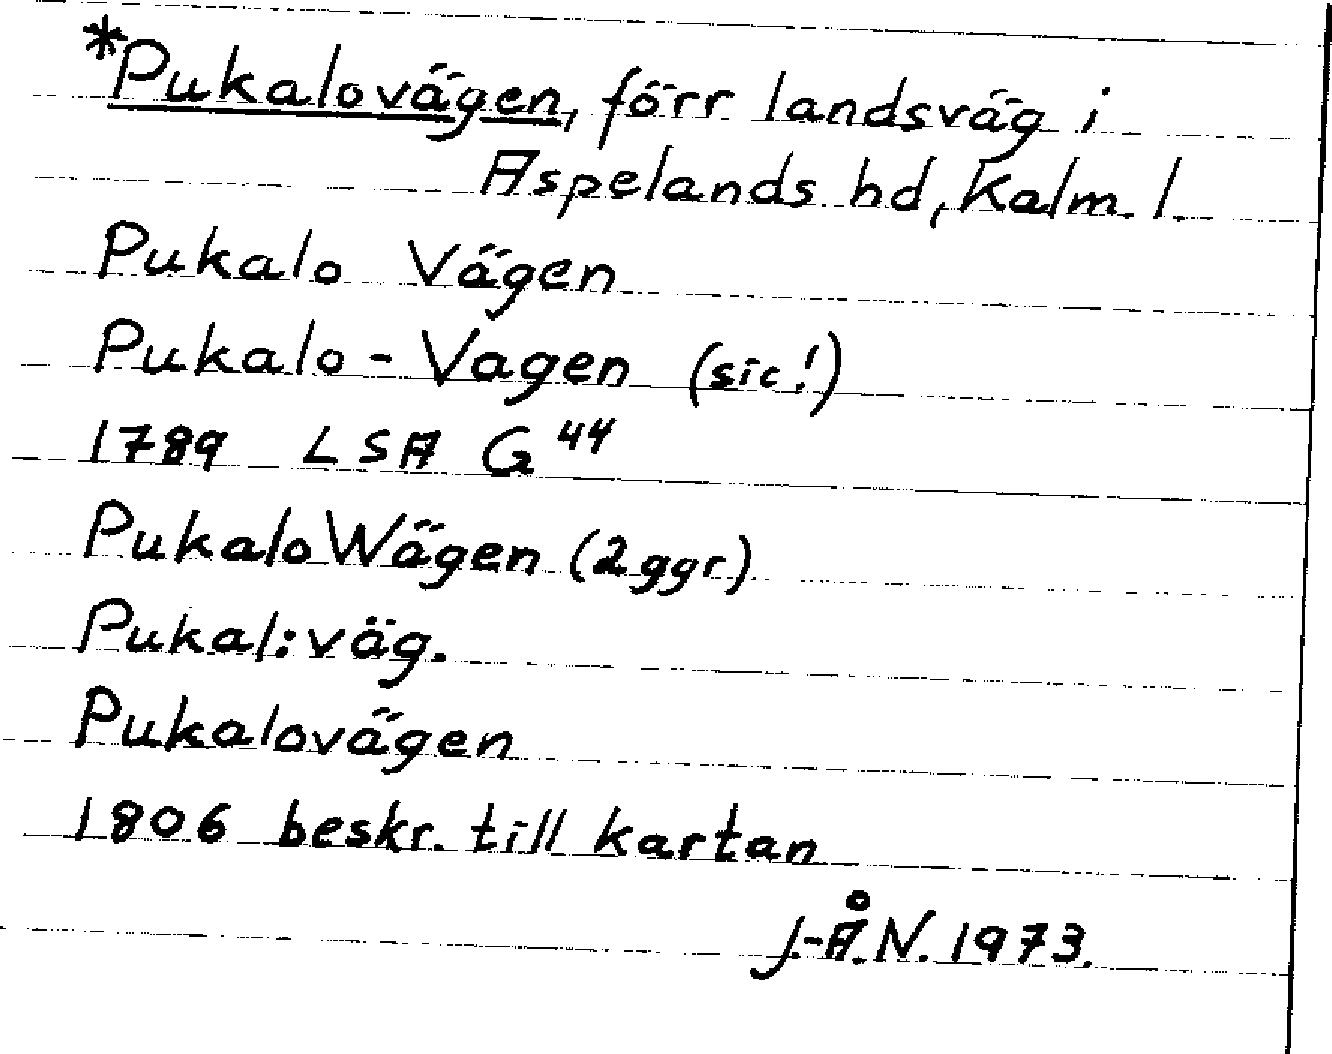 *Pukalovägen, förr landsväg i
Aspelands hd, Kalm. l.
Pukalo Vägen
Pukalo-Vagen (sic!)
1789 LSA G 44
Pukalo Wägen (2 ggr)
Pukal: väg.
Pukalovägen
1806 beskr. till kartan
J.-Å.N. 1973.